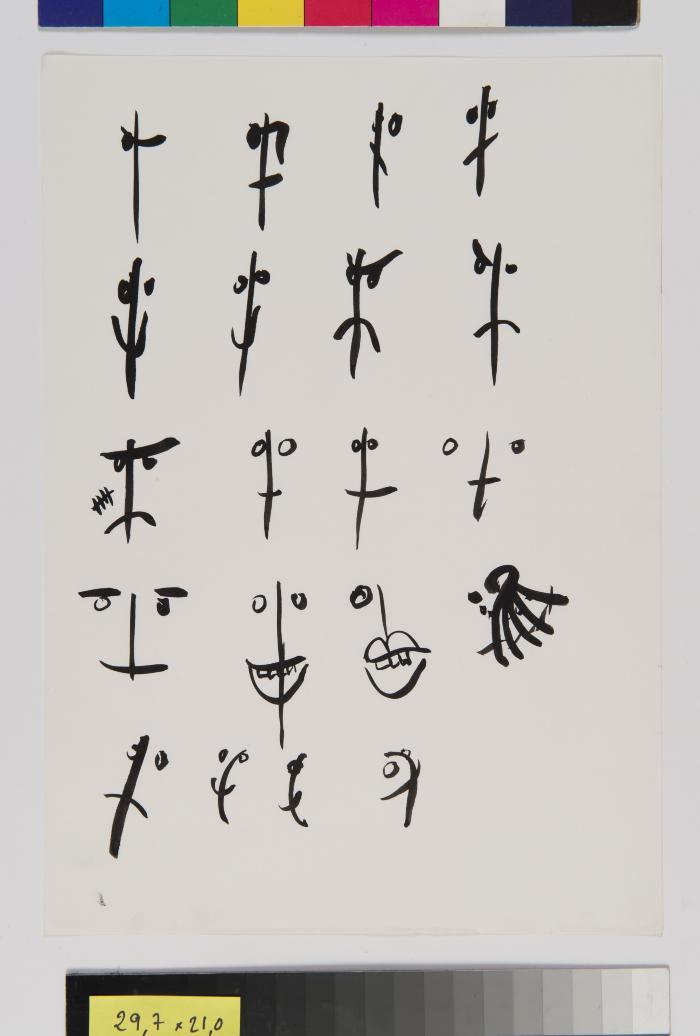 29,7 x 21,0